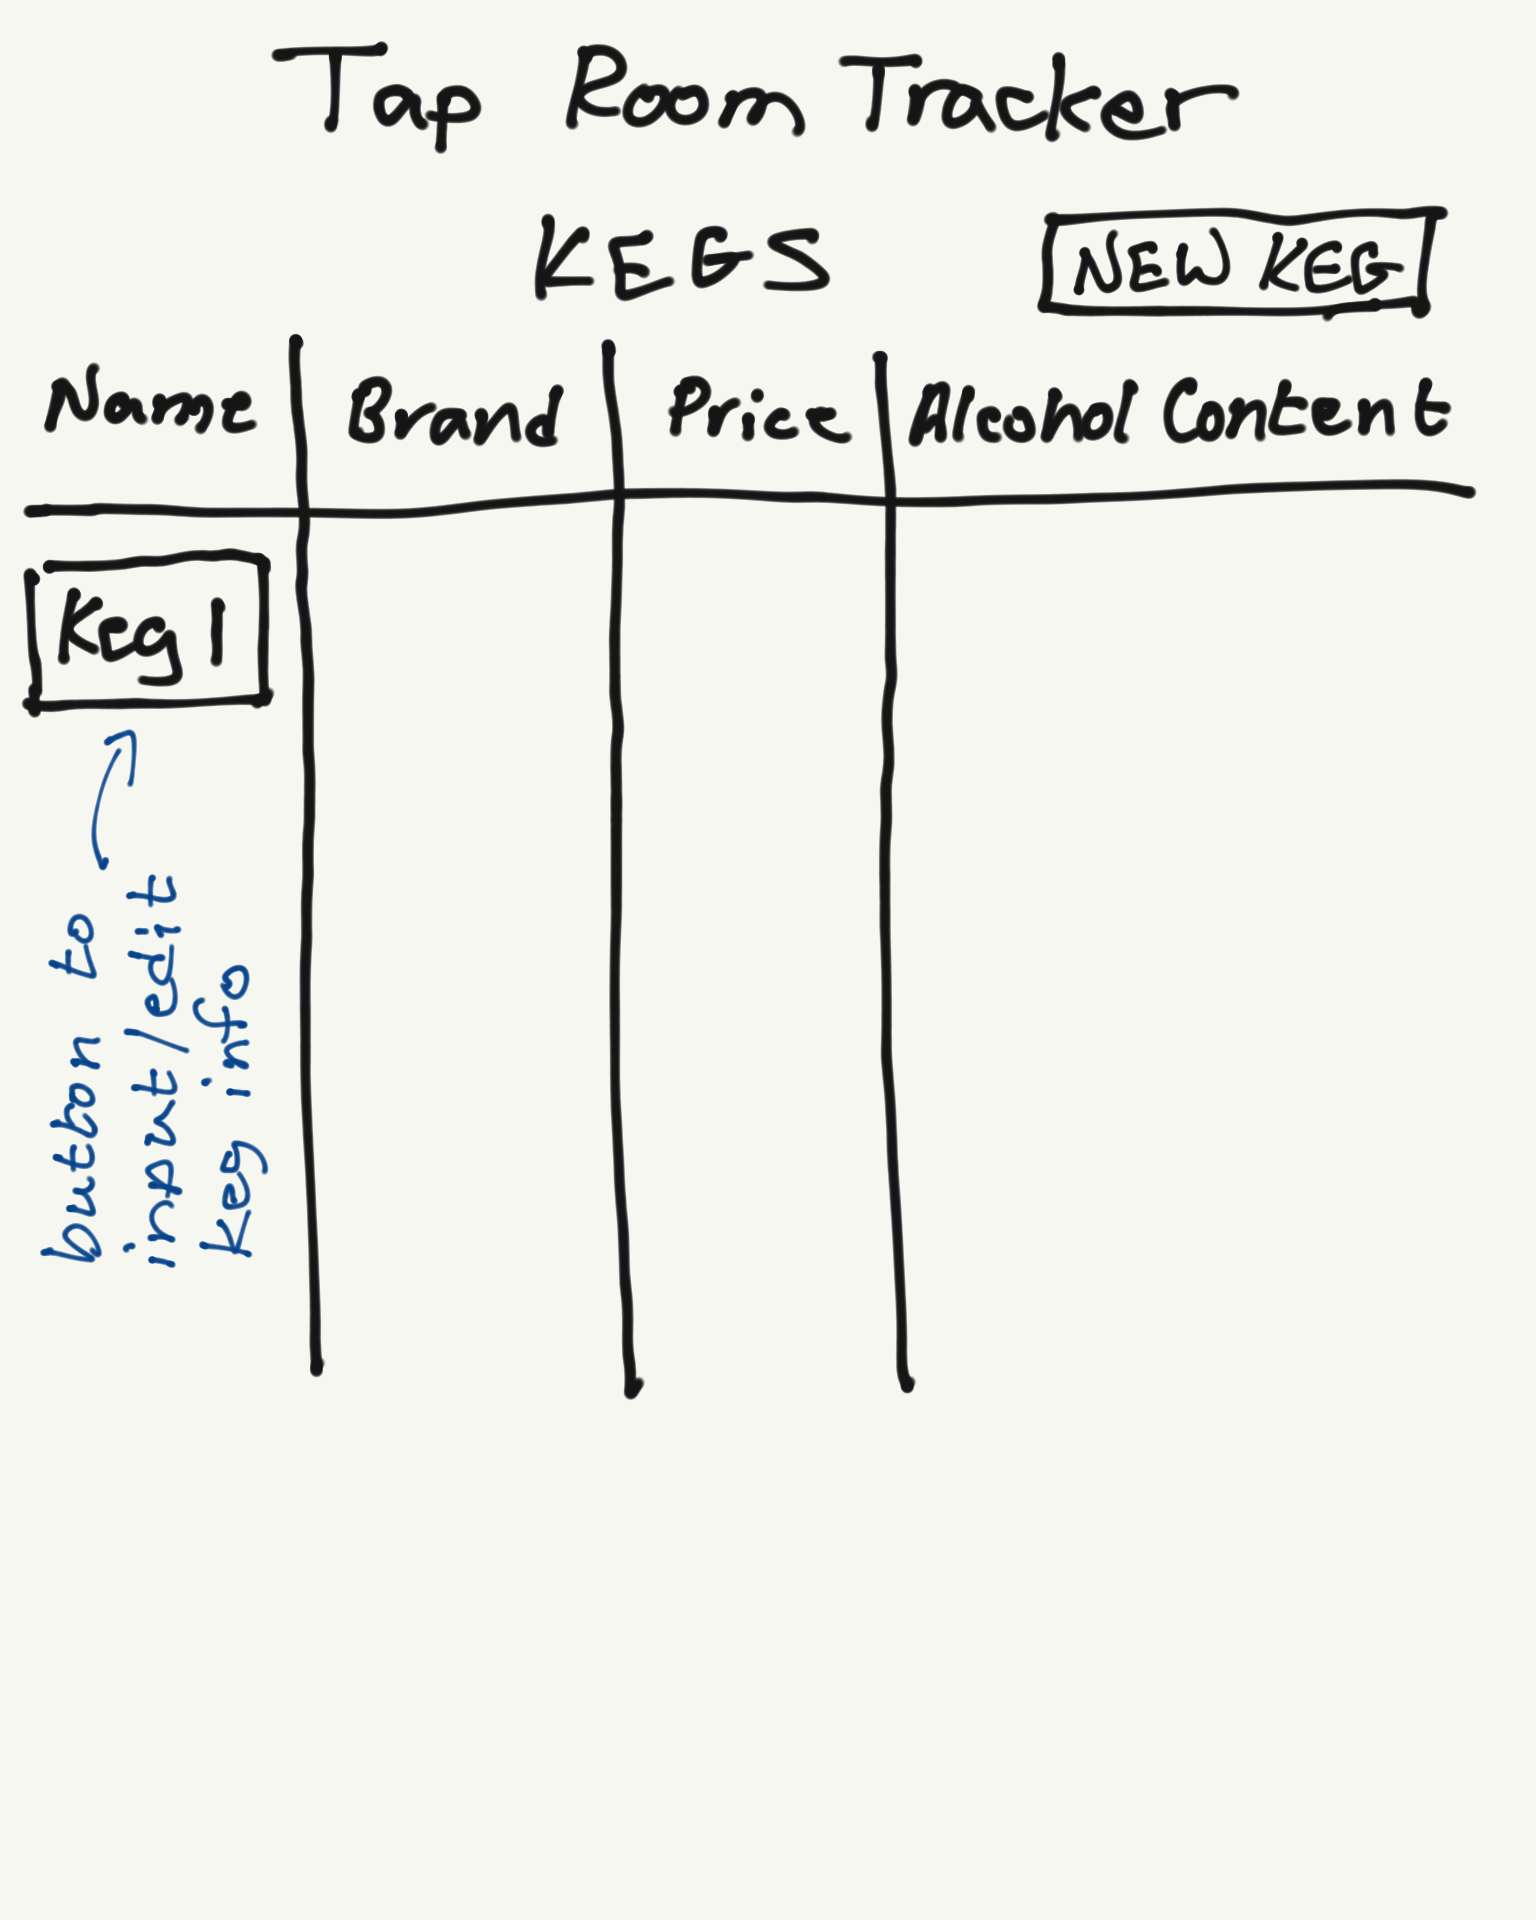 Tap Room Tracker
KEGS
NEW KEG
Name Brand Price Alcohol Content
Keg 1
button to
input/edit
keg info